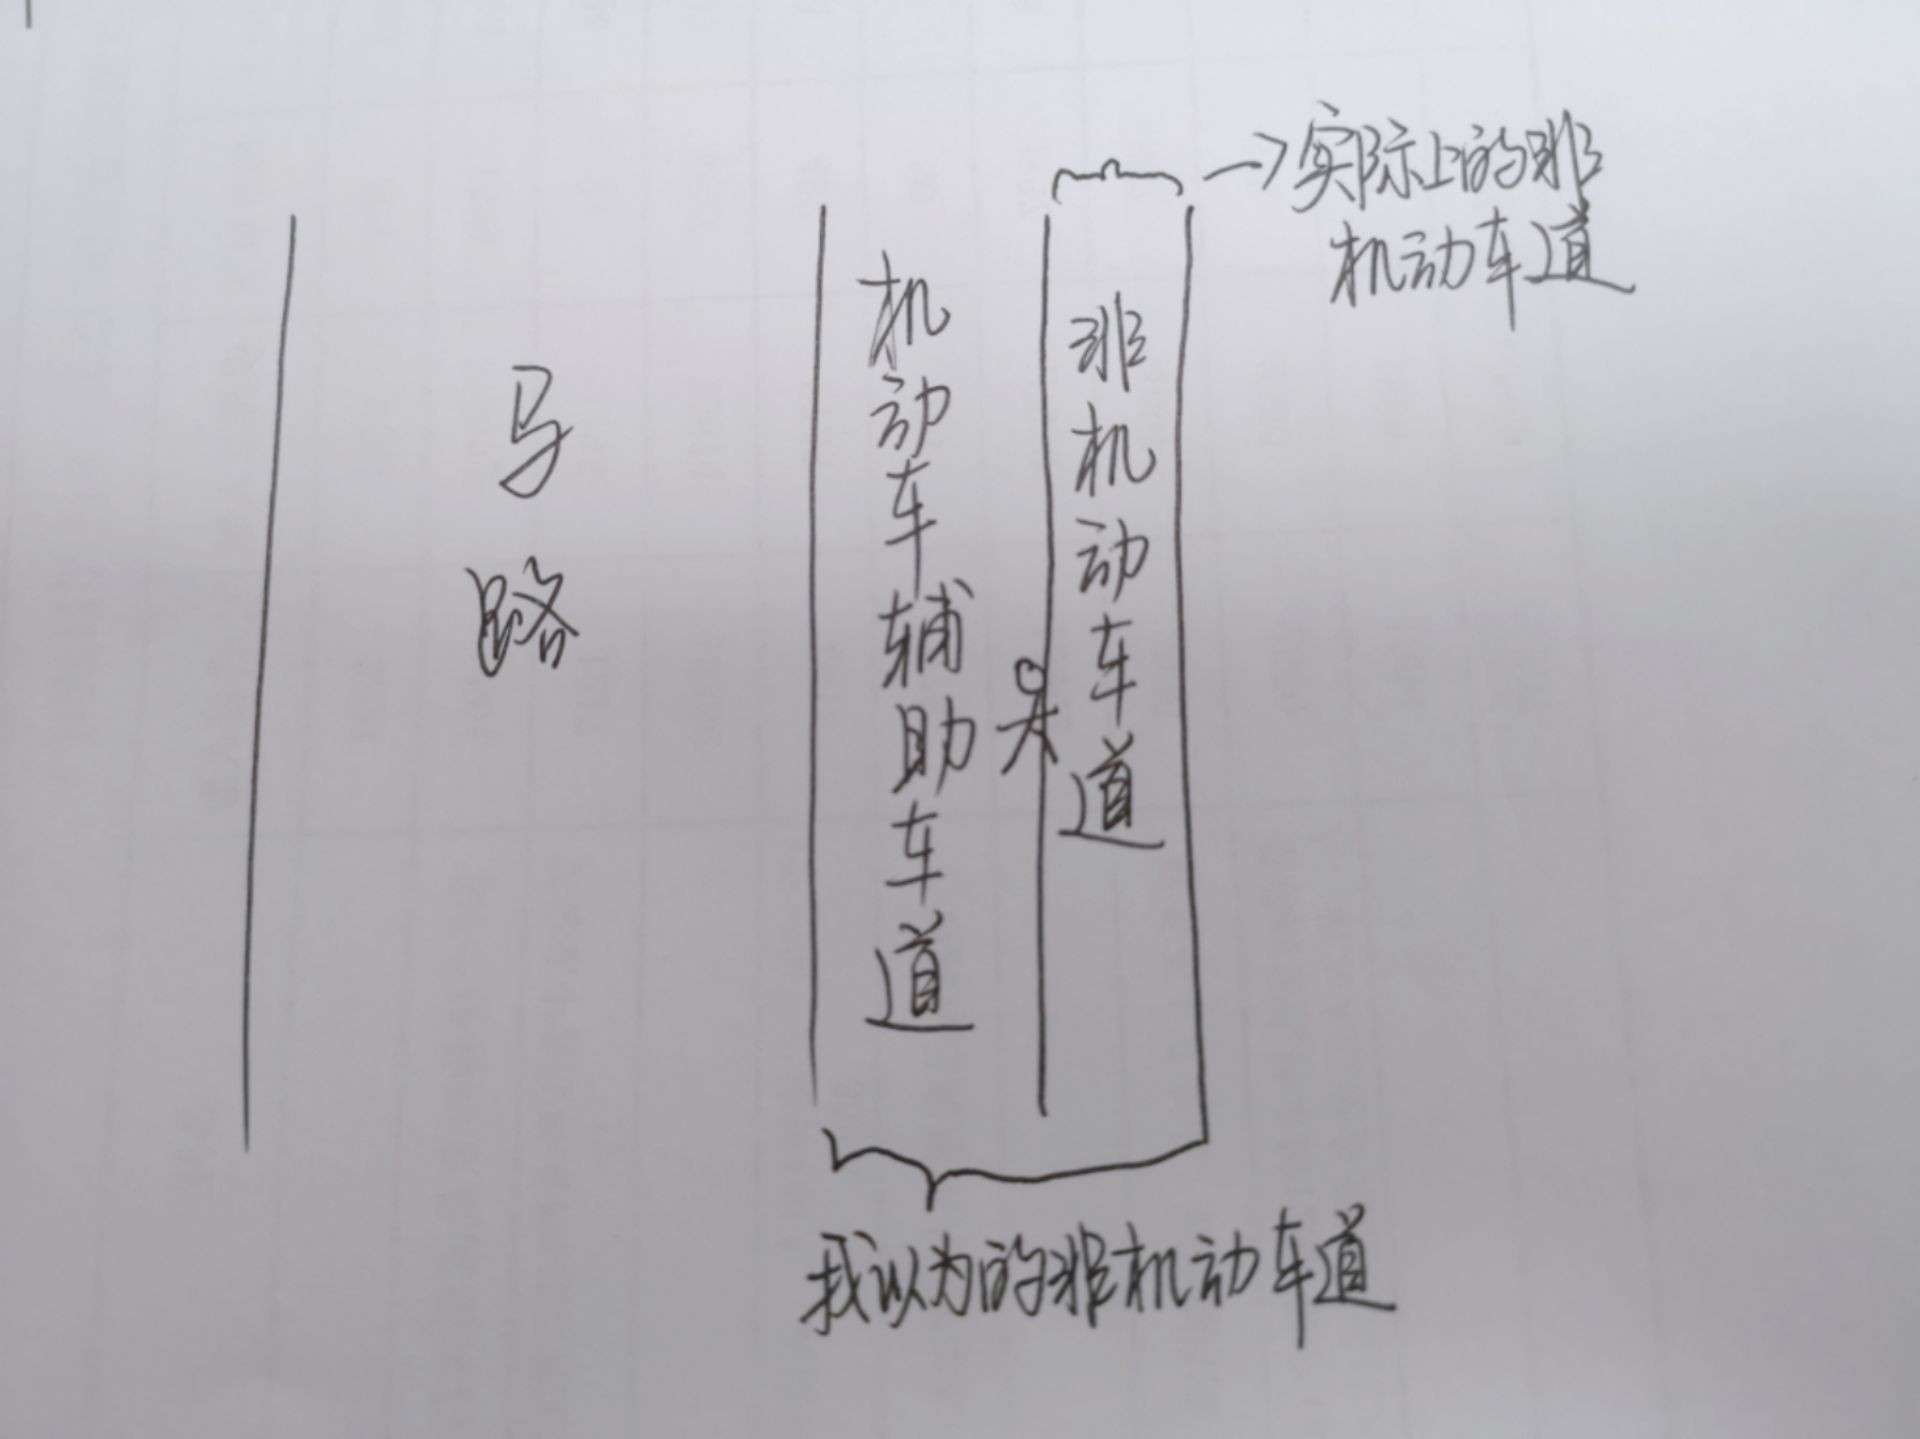 实际上的非
机动车道
马路
机动车辅助车道
非机动车道
我以为的非机动车道